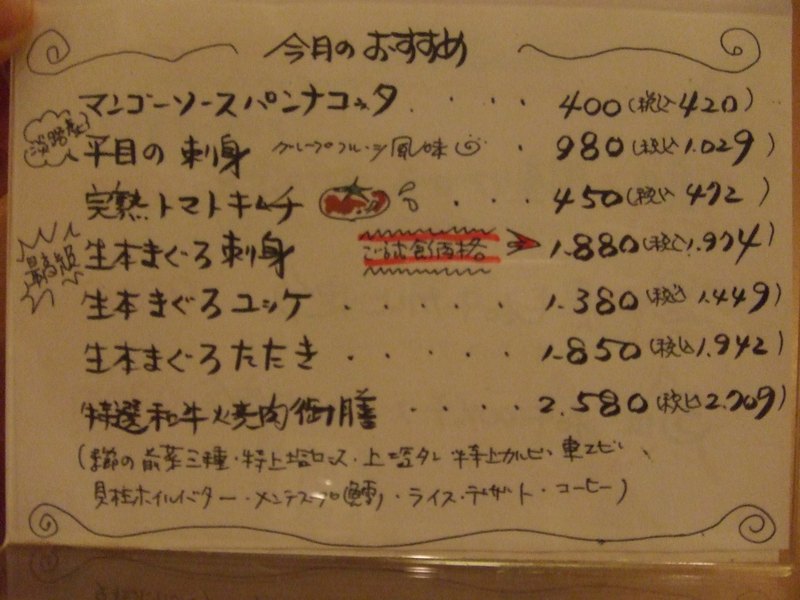 今月のおすすめ
マンゴーソースパンナコッタ . . . . 400(税込420)
淡路産 平目の刺身 グレープフルーツ風味 . 980(税込1.029)
完熟トマトキムチ . . . 450(税込472)
最高級 生本まぐろ刺身 ご試食価格 1.880(税込1.974)
生本まぐろユッケ . . . . . . 1.380(税込1.449)
生本まぐろたたき . . . . . . 1.850(税込1.942)
特選和牛焼肉御膳 . . . . 2.580(税込2.709)
(季節の前菜三種・特上塩ロース・上塩タン 特上カルビ、車エビ、
貝柱ホイルバター・メンテスープ(鱈)・ライス・デザート・コーヒー)